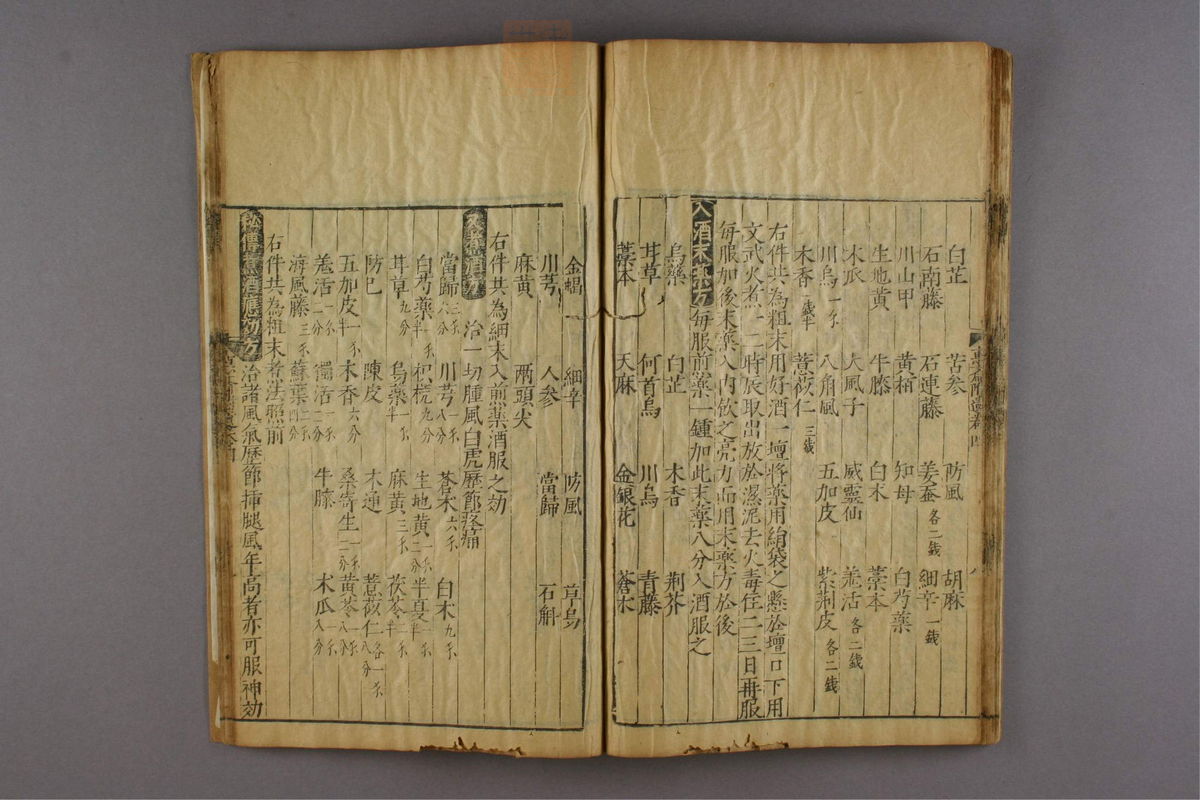 白芷 苦參 防風 胡麻
石南藤 石連藤 姜蚕各二錢 細辛一錢
川山甲 黃栢 知母 白芍藥
生地黃 牛膝 白朮 藁本
木瓜 大風子 威靈仙 羌活各二錢
川烏一分 八角風 五加皮 紫荆皮各二錢
木香一錢半 薏苡仁三錢
右件共為粗末用好酒一壜將藥用絹袋之懸於壜口下用
文武火煮一二時辰取出放於濕泥去火毒在二三日再服
每服加後末藥入內飲之亮力而用末藥方於後
入酒末藥方每服前藥一鍾加此末藥八分入酒服之
烏藥 白芷 木香 荆芥
甘草 何首烏 川烏 青藤
藁本 天麻 金銀花 蒼朮
金蝎 細辛 防風 草烏
川芎 人參 當歸 石斛
麻黃 兩頭尖
右件共為細末入前藥酒服之効
又煮酒方 治一切腫風白虎歷節疼痛
當歸 川芎 蒼朮六分 白朮九分
白芍藥 枳梡九分 生地黃 半夏
甘草九分 烏藥 麻黃三分 茯苓
防巳 陳皮 木通 薏苡仁各一分八分
五加皮 木香六分 桑寄生 黃芩
羌活 獨活 牛膝 木瓜
海風藤 蘇葉
右件共為粗末煮法照前
治諸風氣歷節揷腿風年高者亦可服神効